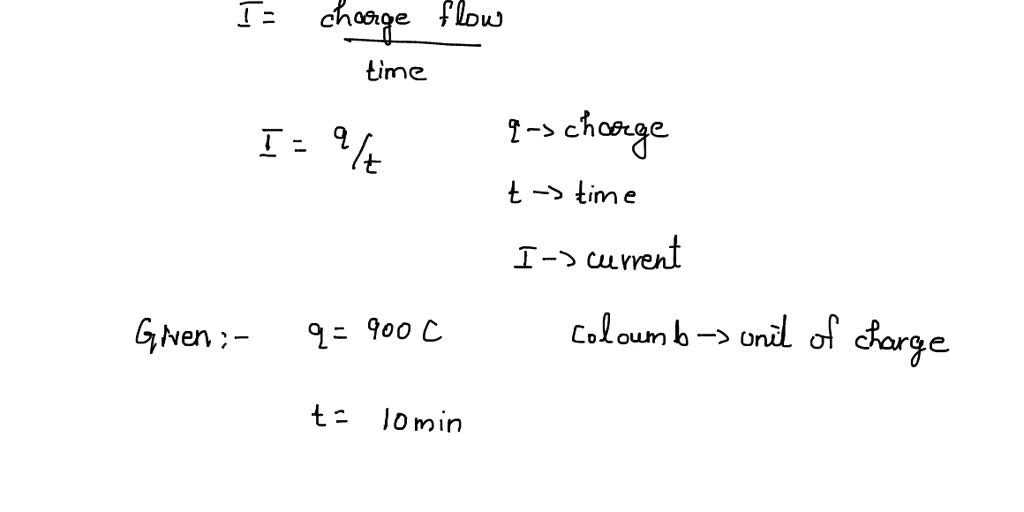 I = charge flow
time
I = q/t q -> charge
t -> time
I -> current
Given :- q = 900 C Coloumb -> unit of charge
t = 10 min